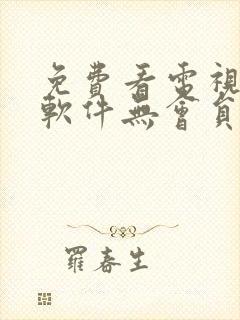 免費看電視
軟件無會員
羅春生